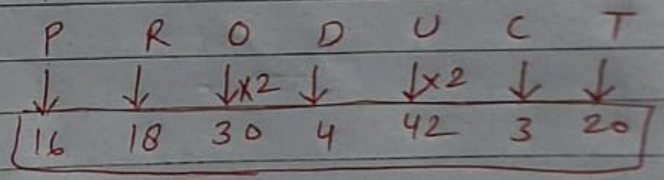 P R O D U C T
↓ ↓ ↓x2 ↓ ↓x2 ↓ ↓
16 18 30 4 42 3 20